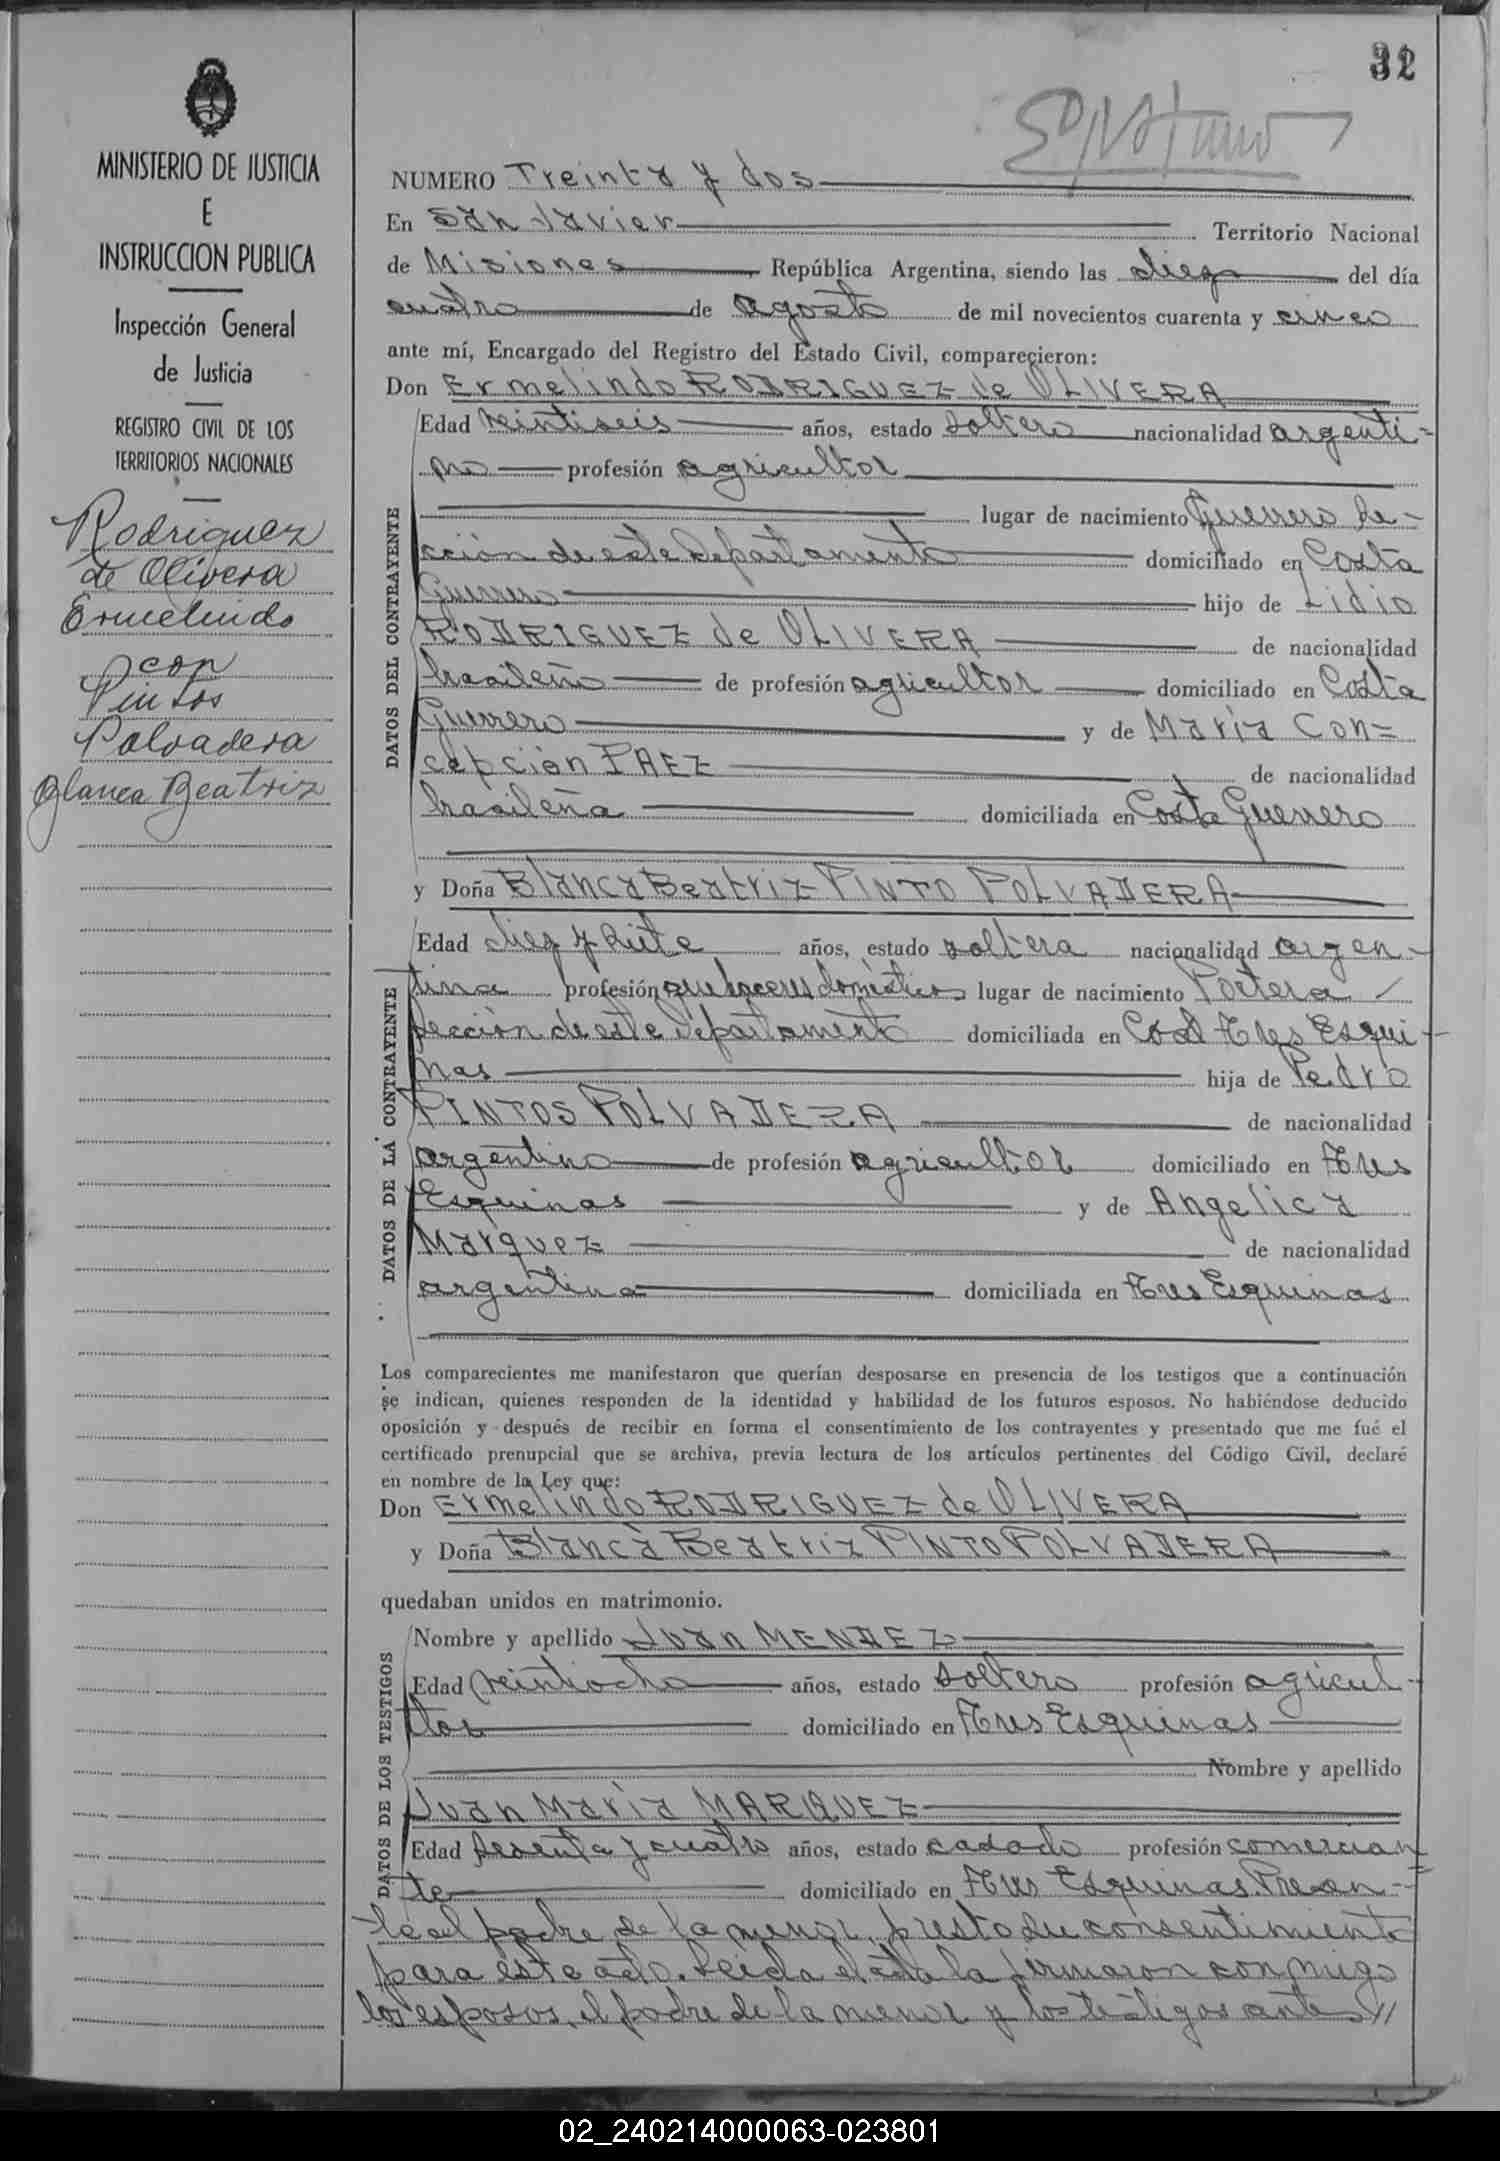 32
MINISTERIO DE JUSTICIA
E
INSTRUCCION PUBLICA
Inspección General
de Justicia
REGISTRO CIVIL DE LOS
TERRITORIOS NACIONALES
Rodriguez
de Olivera
Ermelindo
con
Pintos
Polvadera
Blanca Beatriz
NUMERO Treinta y dos
En San Javier Territorio Nacional
de Misiones República Argentina, siendo las diez del día
cuatro de agosto de mil novecientos cuarenta y cinco
ante mí, Encargado del Registro del Estado Civil, comparecieron:
Don Ermelindo RODRIGUEZ de OLIVERA
DATOS DEL CONTRAYENTE
Edad veintiseis años, estado soltero nacionalidad argenti-
no profesión agricultor
lugar de nacimiento Guerrero Se-
cción de este departamento domiciliado en Costa
Guerrero hijo de Lidio
RODRIGUEZ de OLIVERA de nacionalidad
brasileño de profesión agricultor domiciliado en Costa
Guerrero y de María Con=
cepción PAEZ de nacionalidad
brasileña domiciliada en Costa Guerrero
y Doña Blanca Beatriz PINTO POLVADERA
DATOS DE LA CONTRAYENTE
Edad diez y siete años, estado soltera nacionalidad argen-
tina profesión quehaceres domésticos lugar de nacimiento Portera
Sección de este Departamento domiciliada en Tres Esqui-
nas hija de Pedro
PINTOS POLVADERA de nacionalidad
argentino de profesión agricultor domiciliado en Tres
Esquinas y de Angelica
Marquez de nacionalidad
argentina domiciliada en Tres Esquinas
Los comparecientes me manifestaron que querían desposarse en presencia de los testigos que a continuación
se indican, quienes responden de la identidad y habilidad de los futuros esposos. No habiéndose deducido
oposición y después de recibir en forma el consentimiento de los contrayentes y presentado que me fué el
certificado prenupcial que se archiva, previa lectura de los artículos pertinentes del Código Civil, declaré
en nombre de la Ley que:
Don Ermelindo RODRIGUEZ de OLIVERA
y Doña Blanca Beatriz PINTO POLVADERA
quedaban unidos en matrimonio.
DATOS DE LOS TESTIGOS
Nombre y apellido Juan MENDEZ
Edad veintiocho años, estado soltero profesión agricul-
tor domiciliado en Tres Esquinas
Nombre y apellido
Juan María MARQUEZ
Edad sesenta y cuatro años, estado casado profesión comercian=
te domiciliado en Tres Esquinas. Presen-
te el padre de la menor, presto su consentimiento
para este acto. Leida el acta la firmaron conmigo
los esposos, el padre de la menor y los testigos antes //
02_240214000063-023801